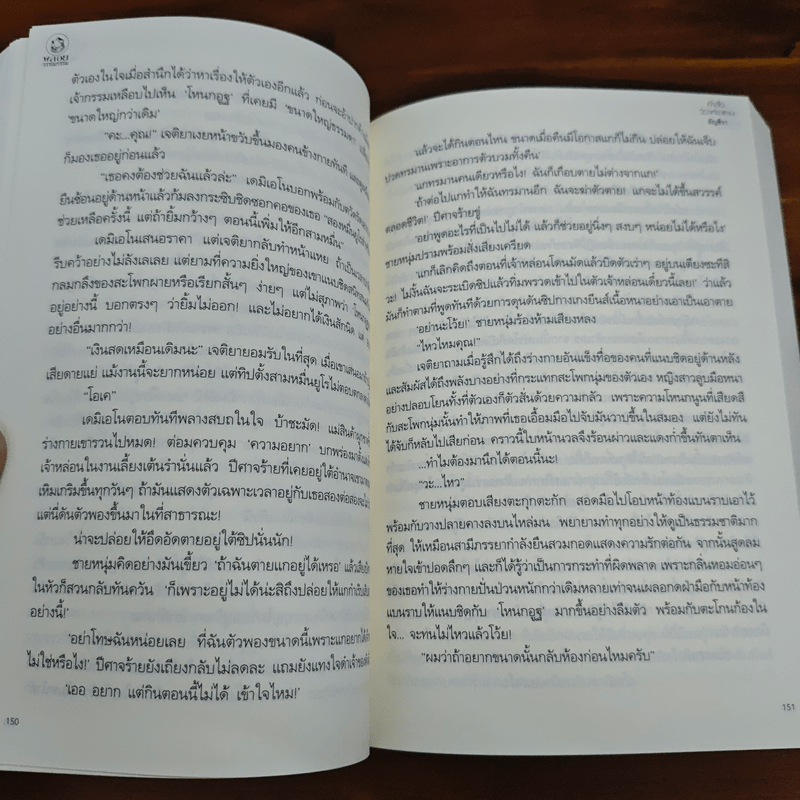 พลอย
วรรณกรรม
ตัวเองในใจเมื่อสำนึกได้ว่าหาเรื่องให้ตัวเองอีกแล้ว ก่อนจะ
เจ้ากรรมเหลือบไปเห็น ‘โหนกอูฐ’ ที่เคยมี ‘ขนาดใหญ่ธรรมดา’
ขนาดใหญ่กว่าเดิม’
“คะ...คุณ!” เจติยาเงยหน้าขวับขึ้นมองคนข้างกายทันที
ก็มองเธออยู่ก่อนแล้ว
“เธอคงต้องช่วยฉันแล้วล่ะ” เดมิเอโนบอกพร้อมกับ
ยืนซ้อนอยู่ด้านหน้าแล้วก้มลงกระซิบชิดซอกคอของเธอ “สองหมื่น
ช่วยเหลือครั้งนี้ แต่ถ้ายิ้มกว้างๆ ตอนนี้เพิ่มให้อีกสามหมื่น”
เดมิเอโนเสนอราคา แต่เจติยากลับทำหน้าแหย ถ้าเป็น
รีบคว้าอย่างไม่ลังเลเลย แต่ยามที่ความยิ่งใหญ่ของเขาแนบชิด
กลมกลึงของสะโพกผายหรือเรียกสั้นๆ ง่ายๆ แต่ไม่สุภาพว่า
อยู่อย่างนี้ บอกตรงๆ ว่ายิ้มไม่ออก! และไม่อยากได้เงินสักนิด
อย่างอื่นมากกว่า!
“เงินสดเหมือนเดิมนะ” เจติยายอมรับในที่สุด เมื่อเขาเสนอมา
เสียดายแย่ แม้งานนี้จะยากหน่อย แต่ทิปตั้งสามหมื่นยูโรไม่ตอบตกลง
“โอเค”
เดมิเอโนตอบทันทีพลางสบถในใจ บ้าชะมัด!
ร่างกายเขารวนไปหมด! ต่อมควบคุม ‘ความอยาก’ บกพร่อง
เจ้าหล่อนในงานเลี้ยงเต้นรำนั่นแล้ว ปีศาจร้ายที่เคยอยู่ใต้อำนาจ
เหิมเกริมขึ้นทุกวันๆ ถ้ามันแสดงตัวเฉพาะเวลาอยู่กับเธอสองต่อสอง
แต่นี่ดันตัวพองขึ้นมาในที่สาธารณะ!
น่าจะปล่อยให้อึดอัดตายอยู่ใต้ซิปนั่นนัก!
ชายหนุ่มคิดอย่างมันเขี้ยว ‘ถ้าฉันตายแกอยู่ได้เหรอ’
ในหัวก็สวนกลับทันควัน ‘ก็เพราะอยู่ไม่ได้น่ะสิถึงปล่อยให้แกกำเริบ
อย่างนี้!’
‘อย่าโทษฉันหน่อยเลย ที่ฉันตัวพองขนาดนี้เพราะแกอยาก
ไม่ใช่หรือไง!’ ปีศาจร้ายยังเถียงกลับไม่ลดละ แถมยังแทงใจดำ
‘เออ อยาก แต่กินตอนนี้ไม่ได้ เข้าใจไหม!’
150
‘แล้วจะได้กินตอนไหน ขนาดเมื่อคืนมีโอกาสแกก็ไม่กิน ปล่อยให้ฉันเจ็บ
ปวดทรมานเพราะอาการตัวบวมทั้งคืน’
‘แกทรมานคนเดียวหรือไง! ฉันก็เกือบตายไม่ต่างจากแก!’
‘ถ้าต่อไปแกทำให้ฉันทรมานอีก ฉันจะฆ่าตัวตาย! แกจะไม่ได้ขึ้นสวรรค์
ตลอดชีวิต!’ ปีศาจร้ายขู่
‘อย่าพูดอะไรที่เป็นไปไม่ได้ แล้วก็ช่วยอยู่นิ่งๆ สงบๆ หน่อยไม่ได้หรือไง’
ชายหนุ่มปรามพร้อมสั่งเสียงเครียด
‘แกก็เลิกคิดถึงตอนที่เจ้าหล่อนโดนมัดแล้วบิดตัวเร่าๆ อยู่บนเตียงซะทีสิ
วะ! ไม่งั้นฉันจะระเบิดซิปแล้วทิ่มพรวดเข้าไปในตัวเจ้าหล่อนเดี๋ยวนี้เลย!’ ว่าแล้ว
มันก็ทำตามที่พูดทันทีด้วยการดุนดันซิปกางเกงยีนส์เนื้อหนาอย่างเอาเป็นเอาตาย
“อย่านะโว้ย!” ชายหนุ่มร้องห้ามเสียงหลง
“ไหวไหมคุณ!”
เจติยาถามเมื่อรู้สึกได้ถึงร่างกายอันแข็งทื่อของคนที่แนบชิดอยู่ด้านหลัง
และสัมผัสได้ถึงพลังบางอย่างที่กระแทกสะโพกนุ่มของตัวเอง หญิงสาวลูบมือหนา
อย่างปลอบโยนทั้งที่ตัวเองก็ตัวสั่นด้วยความกลัว เพราะความโหนกนูนที่เสียดสี
กับสะโพกนุ่มนั้นทำให้ภาพที่เธอเอื้อมมือไปจับมันวาบขึ้นในสมอง แต่ยังไม่ทัน
ได้จับก็หลับไปเสียก่อน คราวนี้ใบหน้านวลจึงร้อนผ่าวและแดงก่ำขึ้นทันตาเห็น
...ทำไมต้องมานึกได้ตอนนี้นะ!
“วะ...ไหว”
ชายหนุ่มตอบเสียงตะกุกตะกัก สอดมือไปโอบหน้าท้องแบนราบเอาไว้
พร้อมกับวางปลายคางลงบนไหล่มน พยายามทำทุกอย่างให้ดูเป็นธรรมชาติมาก
ที่สุด ให้เหมือนสามีภรรยากำลังยืนสวมกอดแสดงความรักต่อกัน จากนั้นสูดลม
หายใจเข้าปอดลึกๆ และก็ได้รู้ว่าเป็นการกระทำที่ผิดพลาด เพราะกลิ่นหอมอ่อนๆ
ของเธอทำให้ร่างกายปั่นป่วนหนักกว่าเดิมหลายเท่าจนเผลอกดฝ่ามือกับหน้าท้อง
แบนราบให้แนบชิดกับ ‘โหนกอูฐ’ มากขึ้นอย่างลืมตัว พร้อมกับตะโกนก้องใน
ใจ... จะทนไม่ไหวแล้วโว้ย!
“ผมว่าถ้าอยากขนาดนั้นกลับห้องก่อนไหมครับ”
151